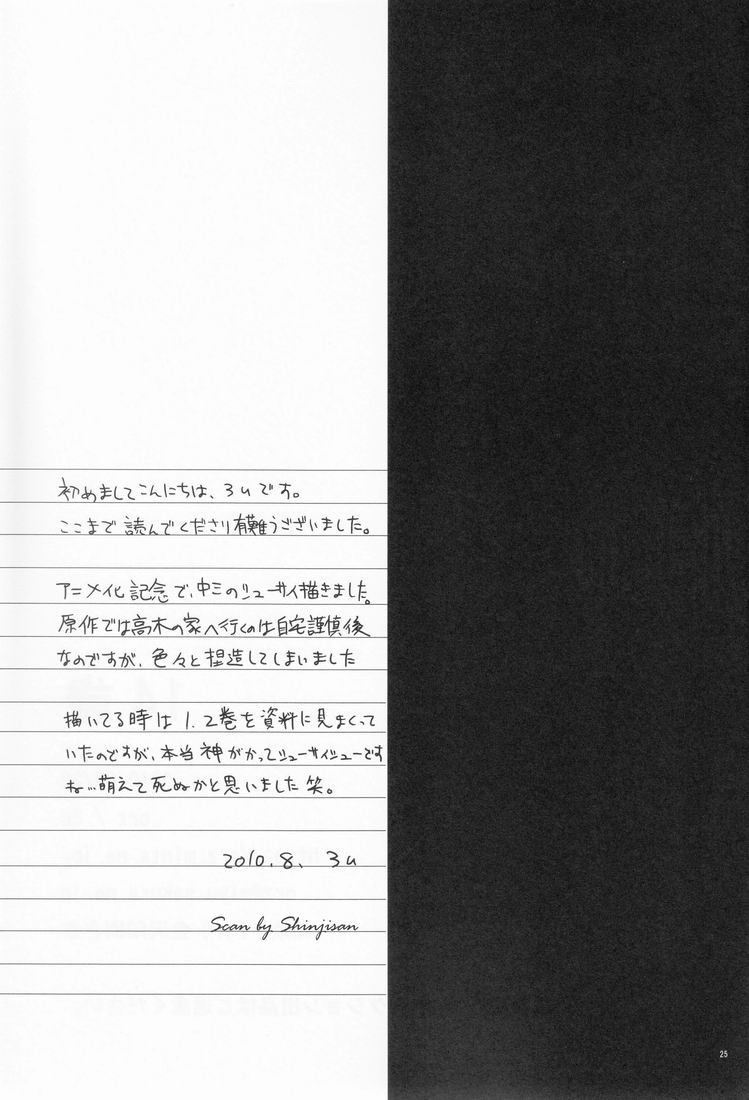 初めましてこんにちは、3uです。
ここまで読んでくださり有難うございました。
アニメ化記念で、中三のシューサイ描きました。
原作では高木の家へ行くのは自宅謹慎後
なのですが、色々と捏造してしまいました
描いてる時は1.2巻を資料に見まくって
いたのですが、本当神がかってシューサイシューです
ね…萌えて死ぬかと思いました笑。
2010.8、 3u
Scan by Shinjisan
25